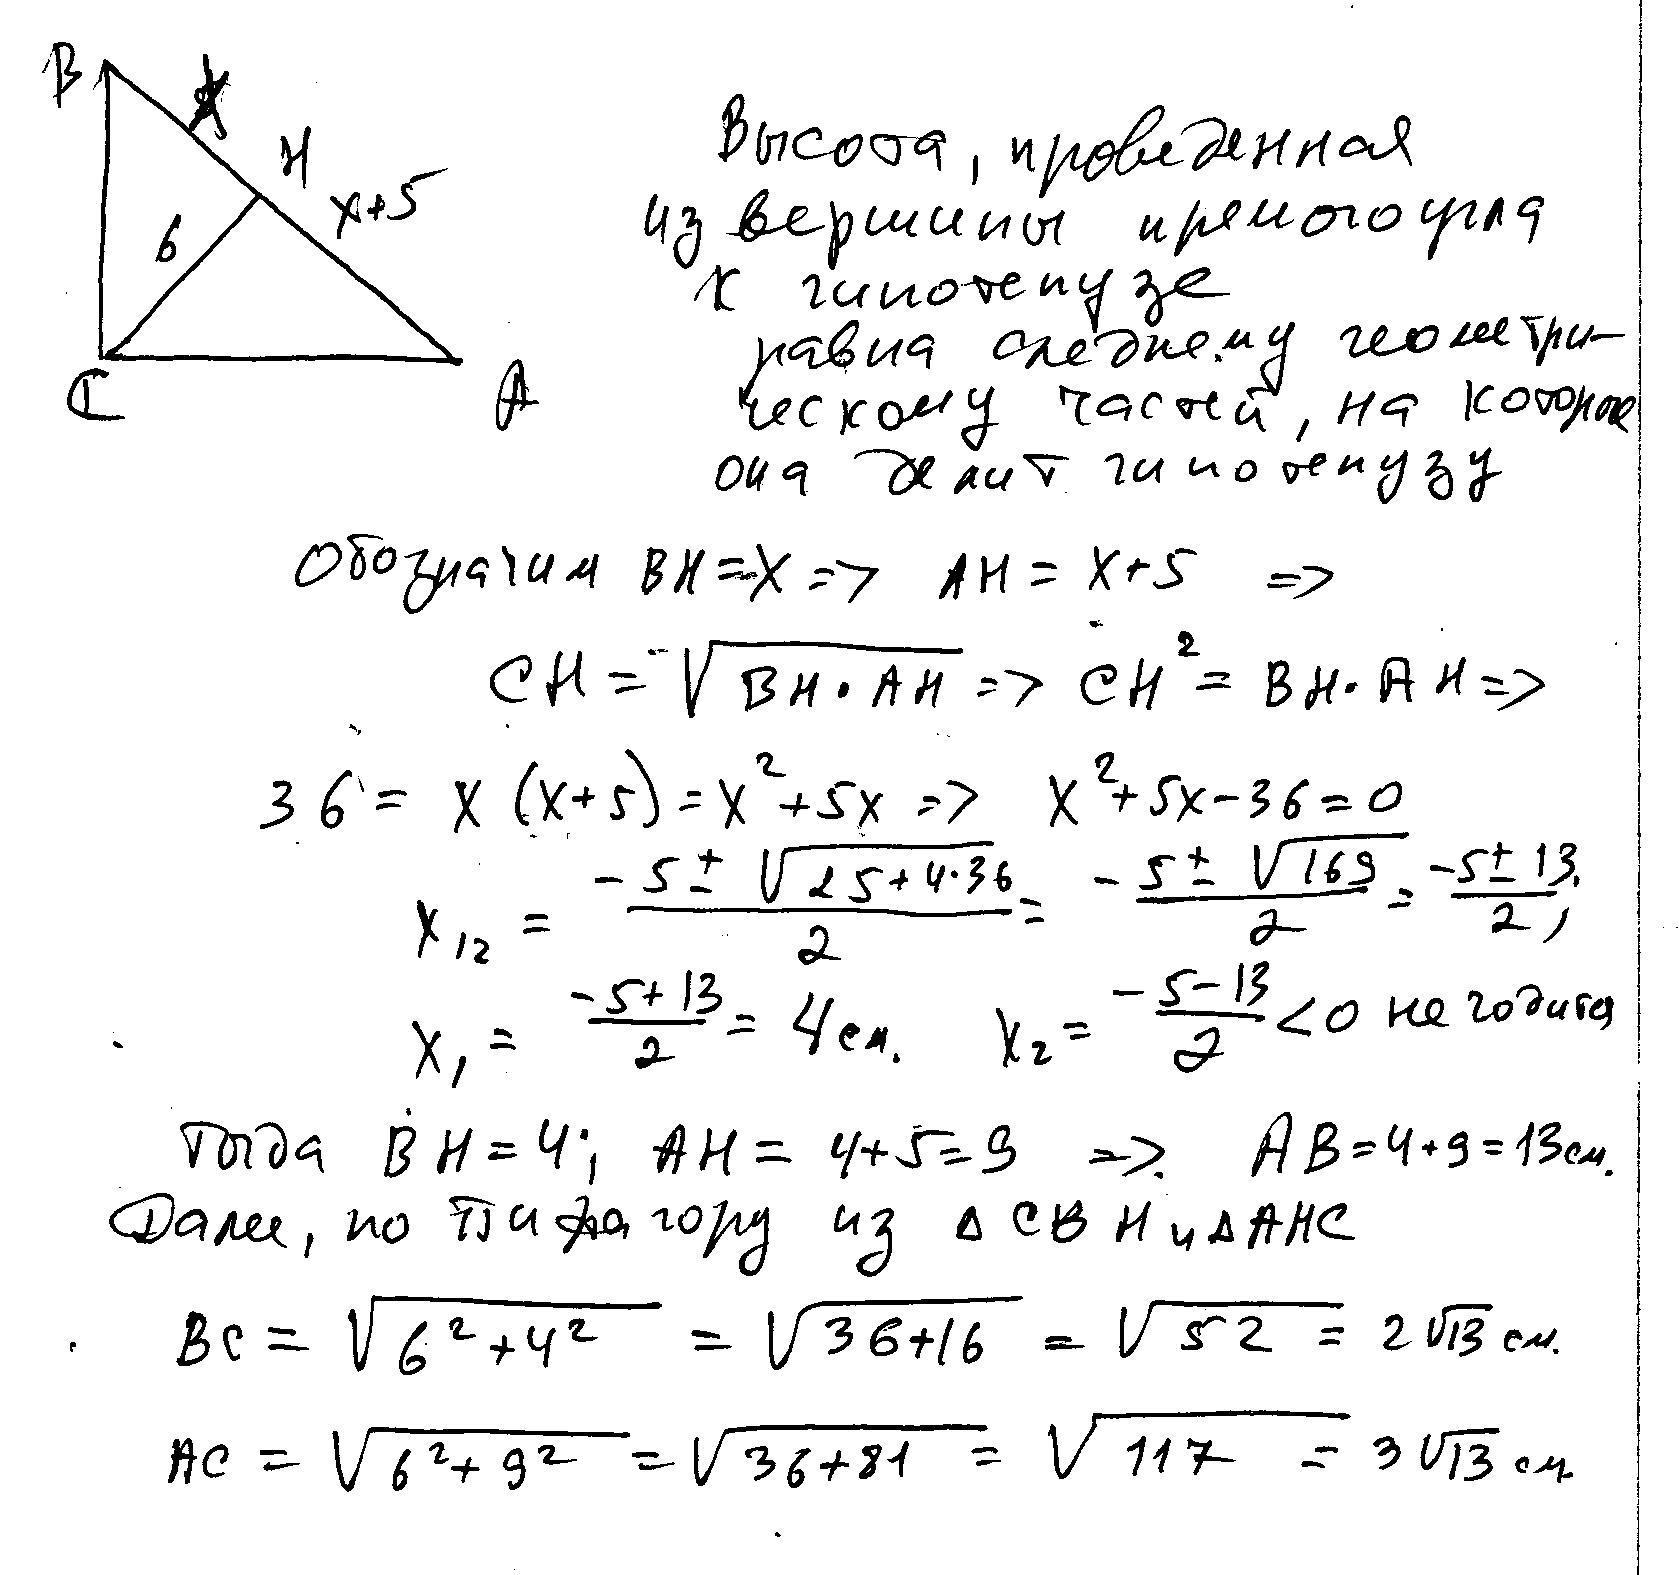 B
x
H
x+5
6
C
A
Высота, проведенная
из вершины прямого угла
к гипотенузе
равна среднему геометри-
ческому частей, на которые
она делит гипотенузу
Обозначим BH=X => AH = X+5 =>
CH = √(BH·AH) => CH² = BH·AH =>
36 = X (X+5) = X²+5X => X²+5X-36=0
X₁₂ = (-5±√(25+4·36))/2 = (-5±√169)/2 = (-5±13)/2;
X₁ = (-5+13)/2 = 4 см. X₂ = (-5-13)/2 <0 не годится
Тогда BH=4; AH = 4+5=9 => AB=4+9=13 см.
Далее, по Пифагору из Δ CBH и Δ AHC
BC = √(6²+4²) = √(36+16) = √52 = 2√13 см.
AC = √(6²+9²) = √(36+81) = √117 = 3√13 см